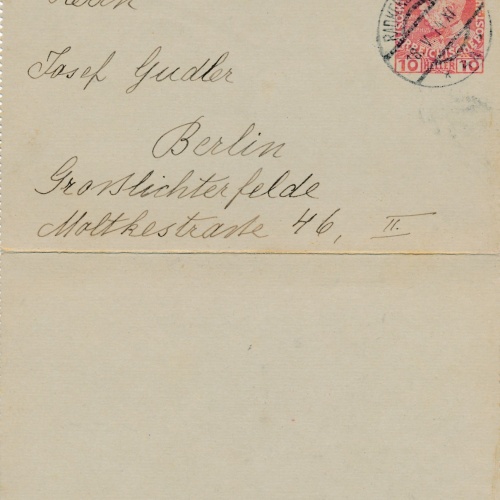 Herrn
Josef Gudler
Berlin
Grosslichterfelde
Moltkestrasse 46, II.
10 HELLER 10